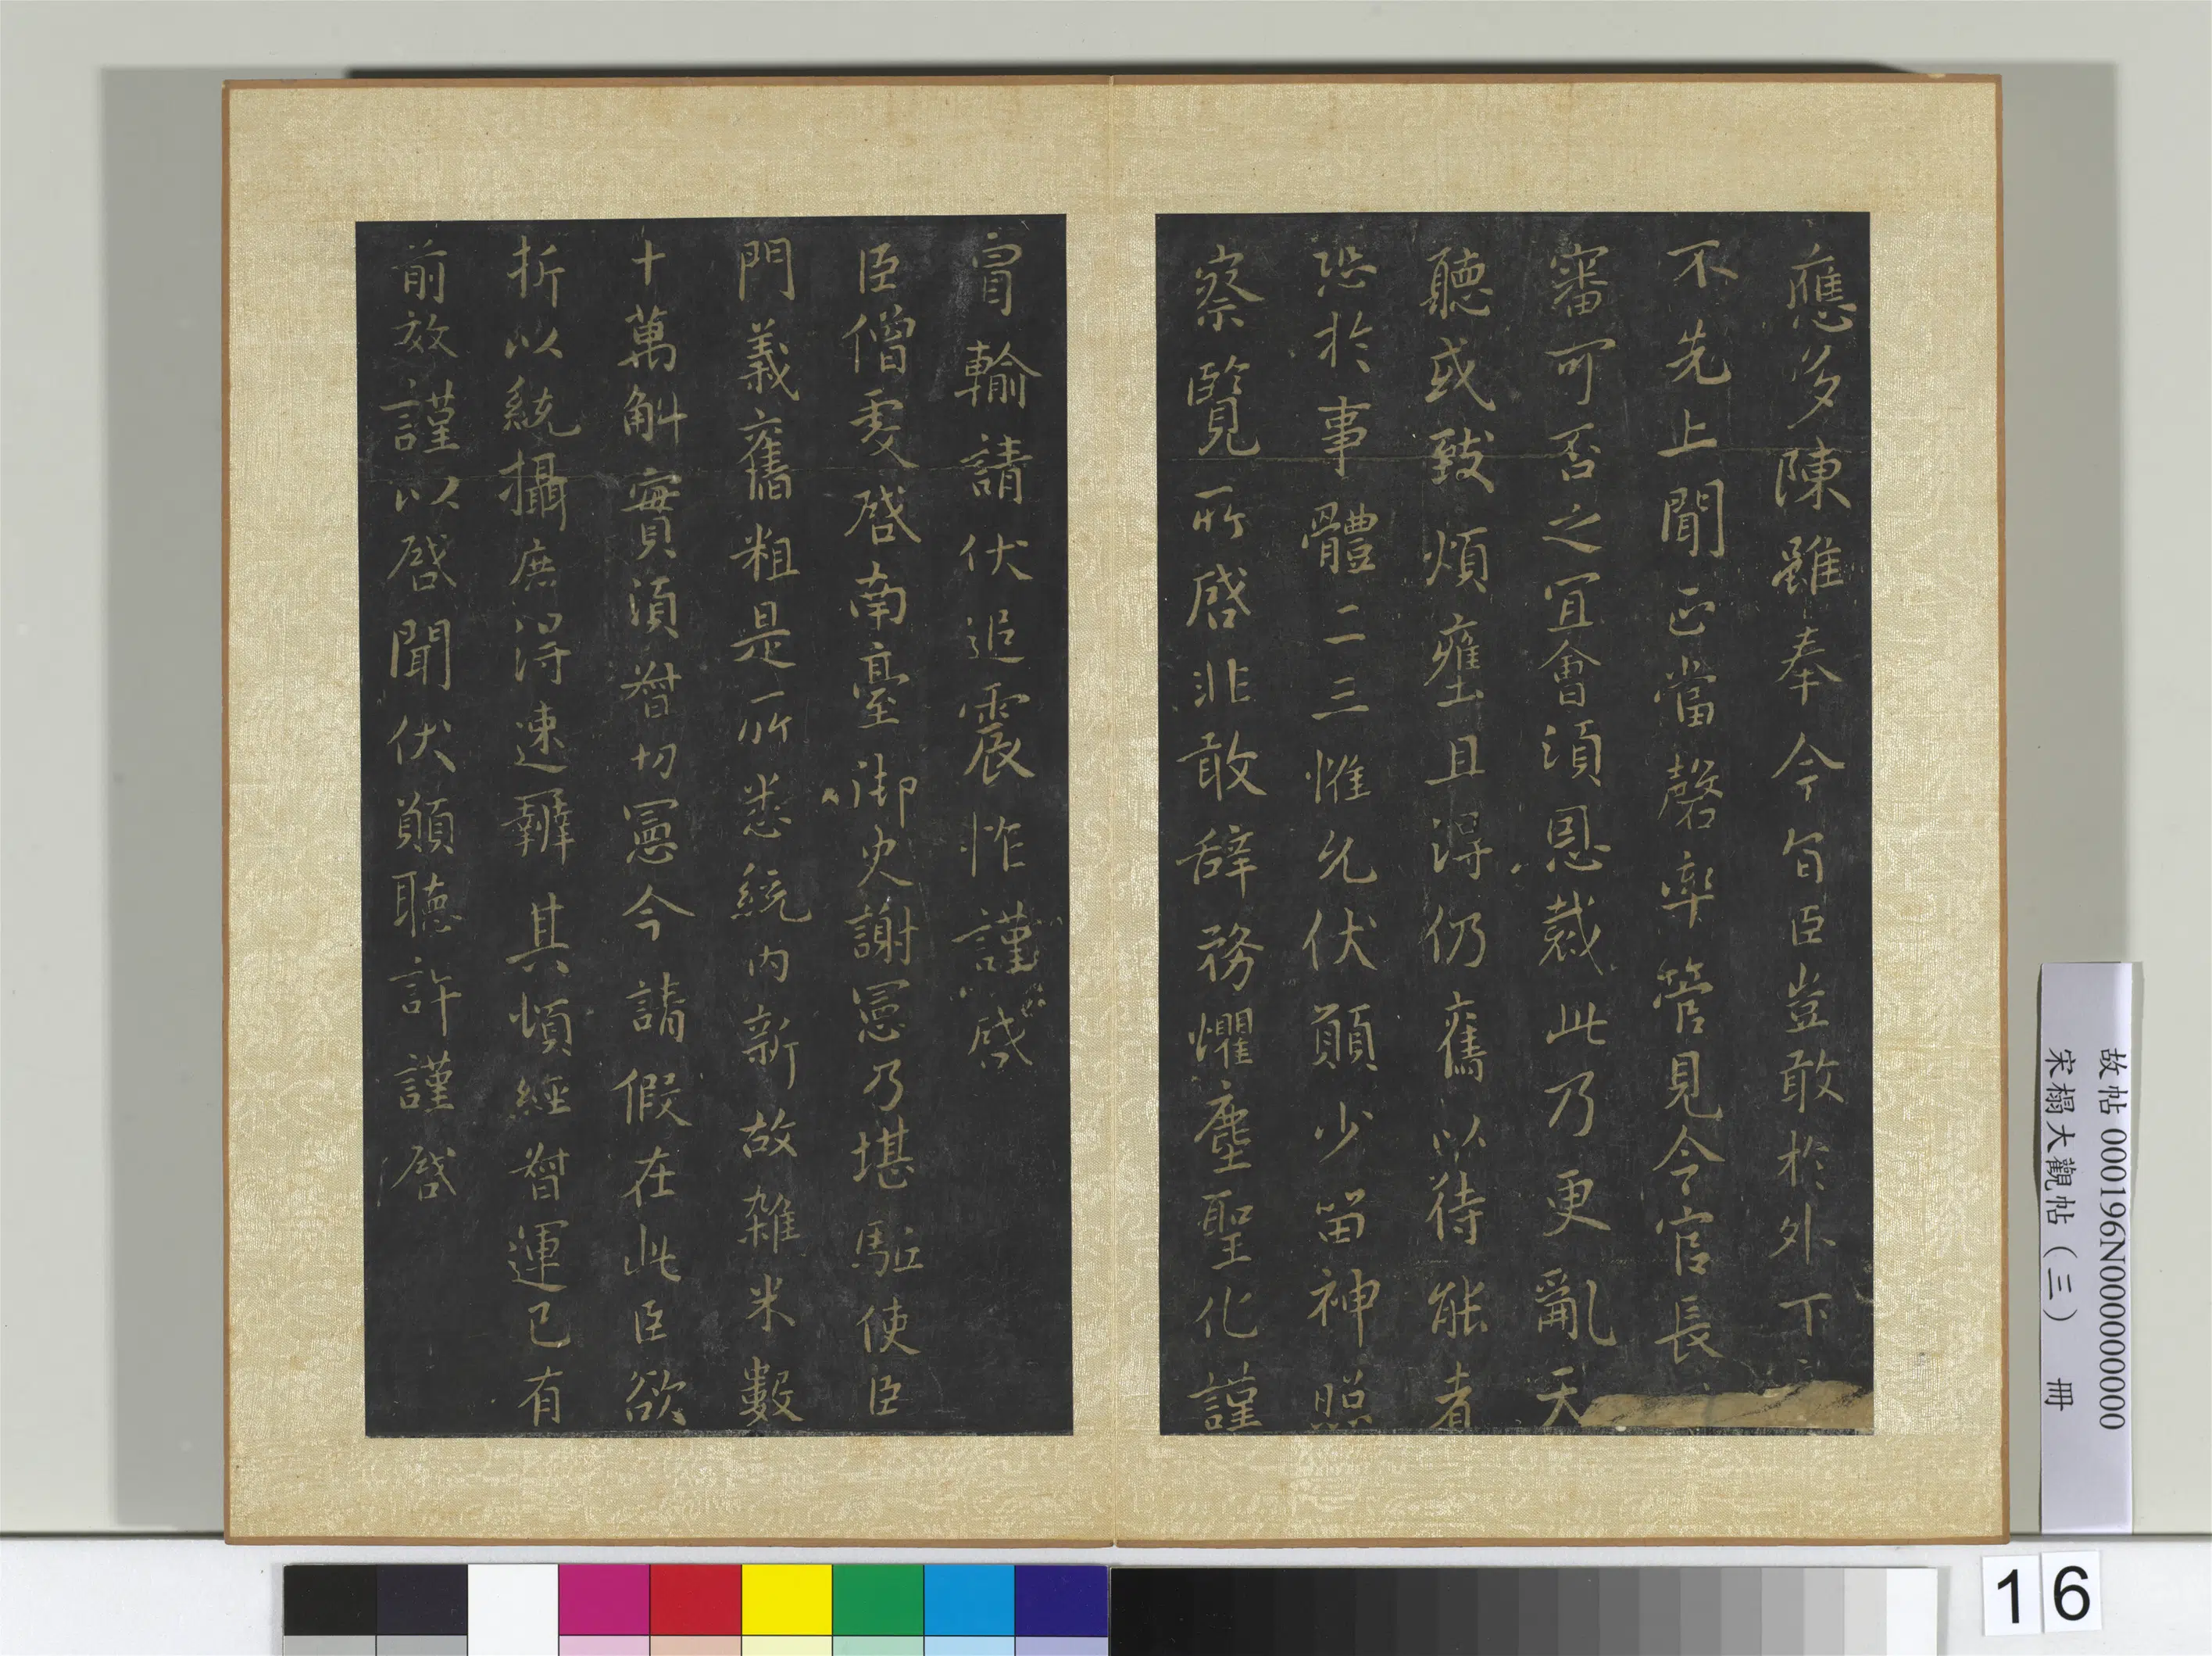 應多陳雖奉今旨臣豈敢於外下
不先上聞正當罄率管見令官長
審可否之宜會須恩裁此乃更亂天
聽或致煩壅且得仍舊以待能者
恐於事體二三惟允伏願少留神照
察覽所啓非敢辭務懼塵聖化謹
冒輸請伏追震怍謹啓
臣僧虔啓南臺御史謝憲乃堪駈使臣
門義舊粗是所悉統内新故雜米數
十萬斛實須督切憲今請假在此臣欲
折以統攝庶得速辦其頃經督運已有
前效謹以啓聞伏願聽許謹啓
故帖 000196N000000000
宋榻大觀帖（三） 冊
16